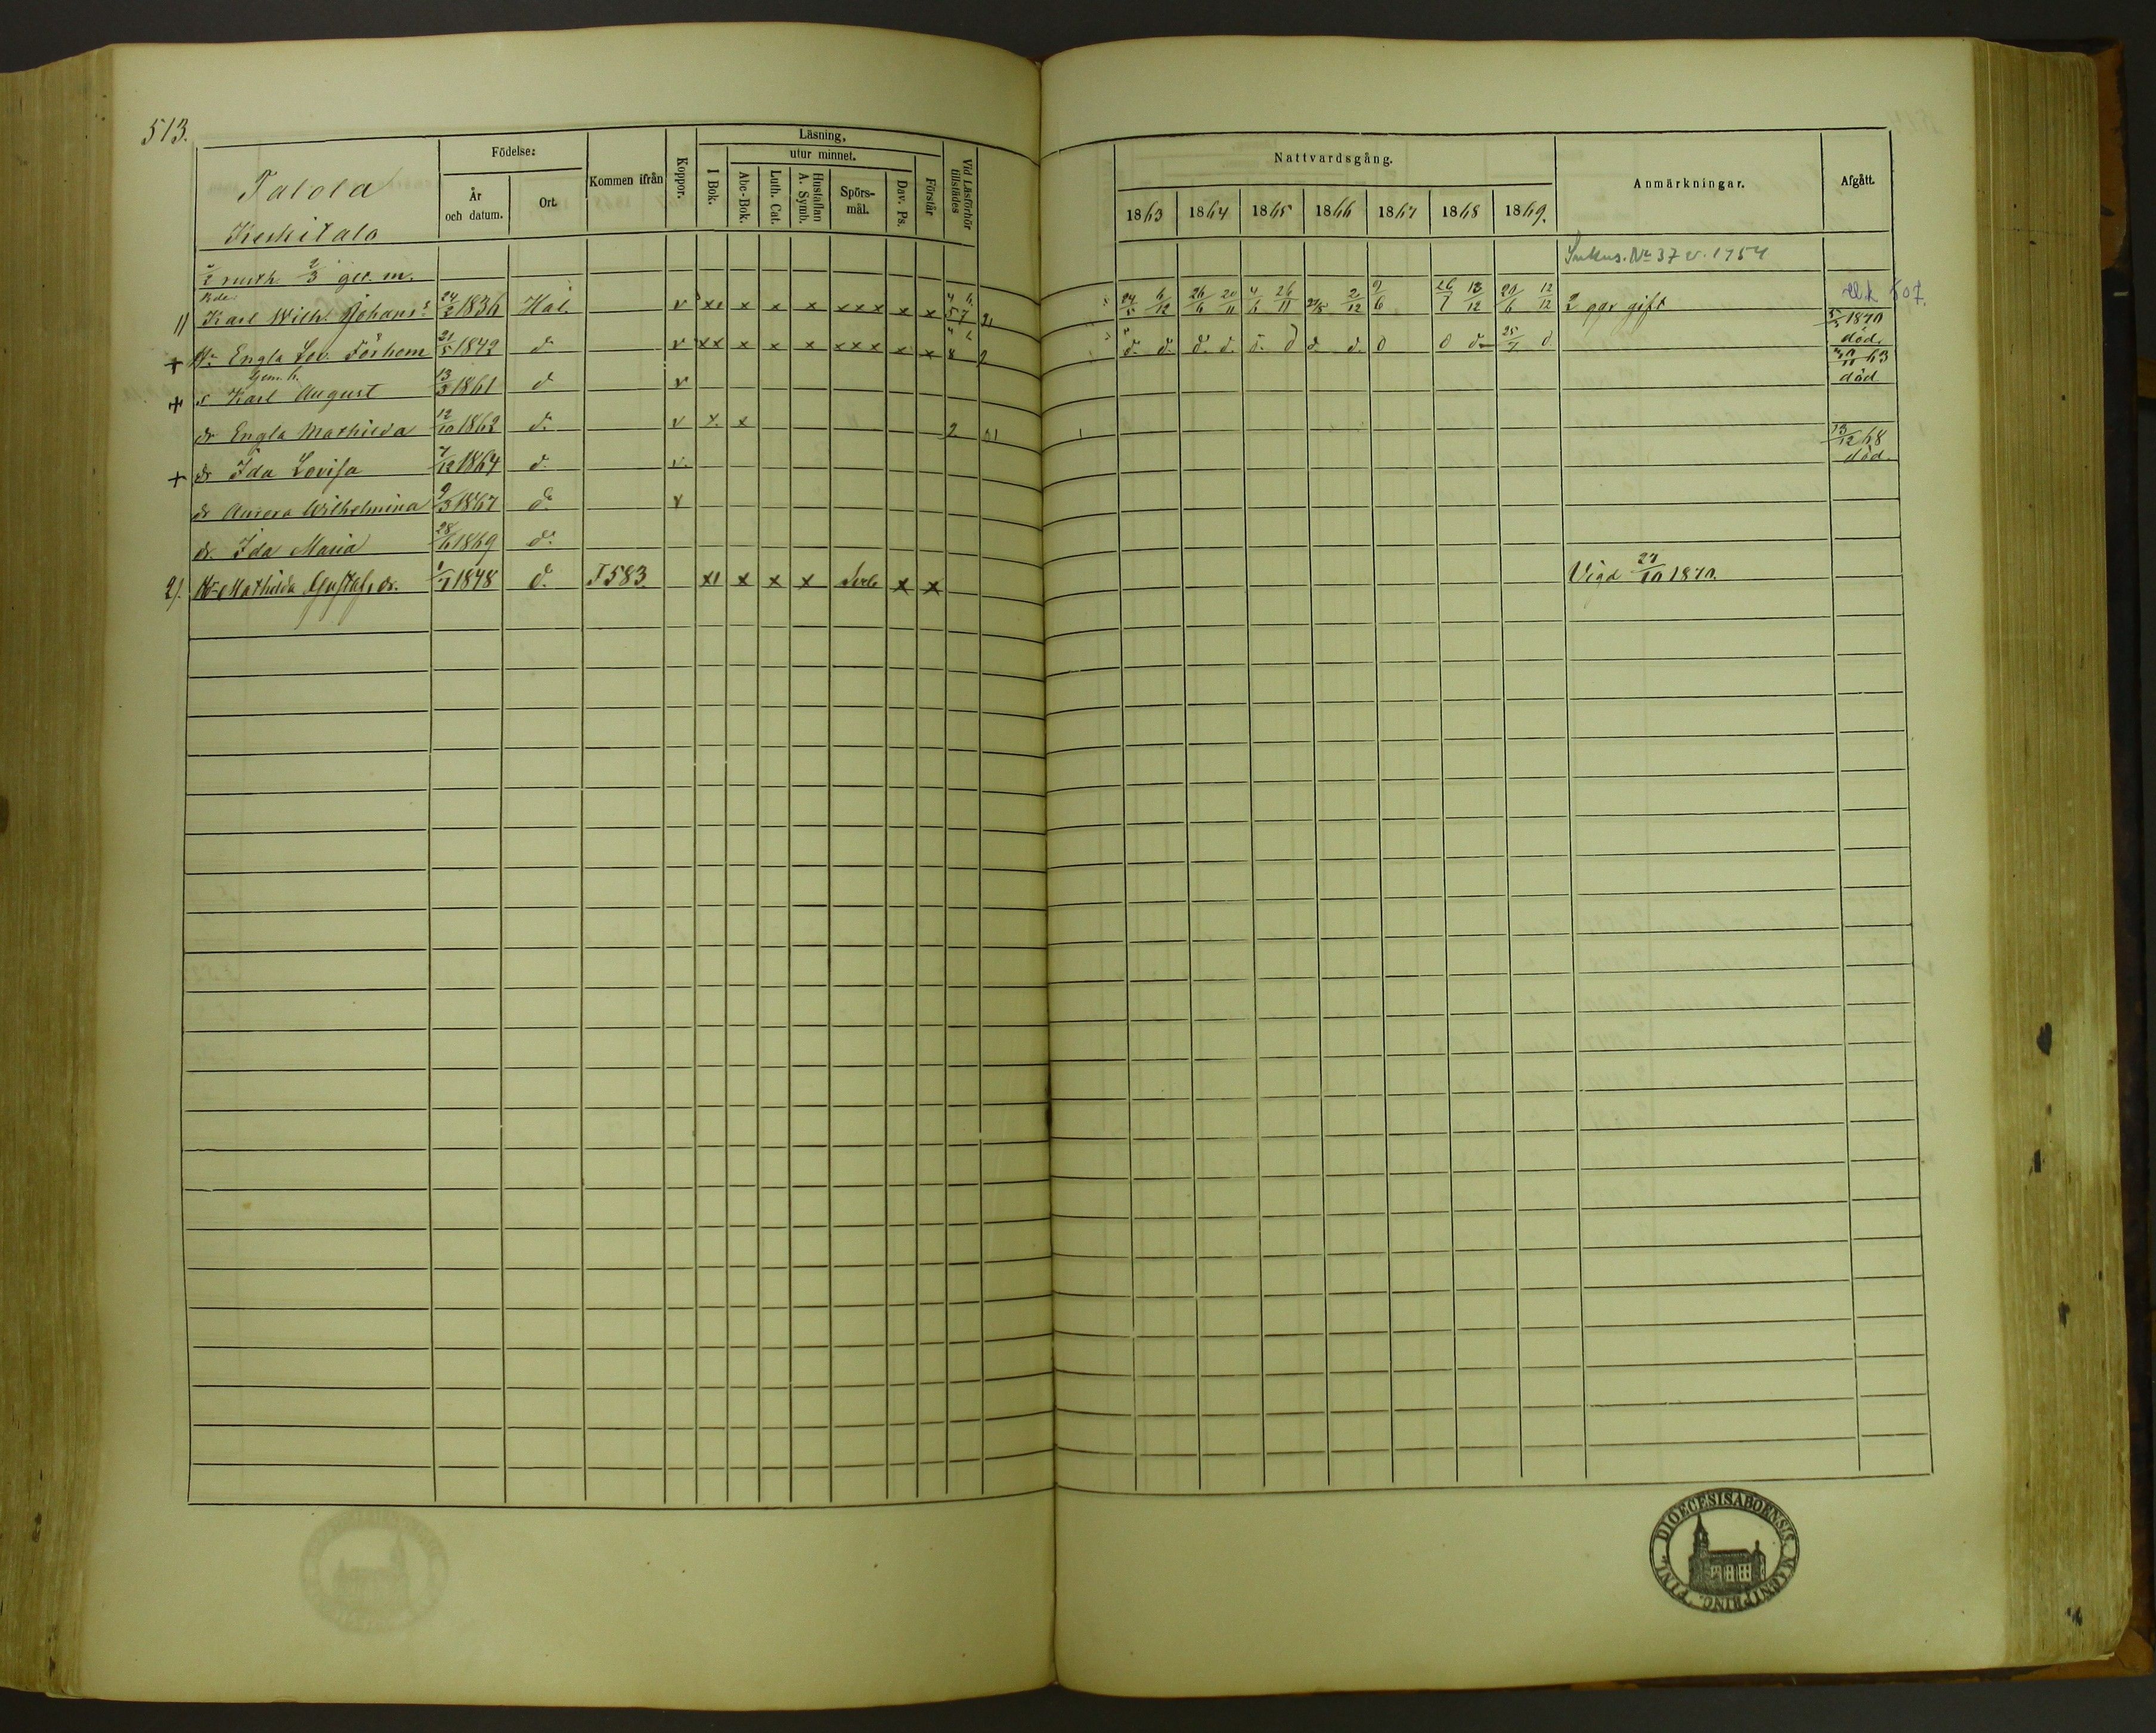 513.
Talola
Keskitalo
Födelse:
År och datum.
Ort.
Kommen ifrån
Koppor.
Läsning,
I Bok.
utur minnet.
Abc-Bok.
Luth. Cat.
Hustaflan A. Symb.
Spörs-mål.
Dav. Ps.
Förstår
Vid Läsförhör tillstädes
Nattvardsgång.
1863 1864 1865 1866 1867 1868 1869.
Anmärkningar.
Afgått.
2/3 ger. m.
Sukus. No 37 v. 1954
1) Karl Wilh. Johans: 24/2 1836 Hal. v x x x x x x x x x 24/5 6/12 26/6 20/11 4/6 26/11 2/12 9/6 26/7 13/12 20/6 12/12 2 gar gift
507.
+ Hu Engla Lov. Förhem 21/5 1842 d. v x x x x x x x x x x 8 2 d. d. d. d. d. d d. d. d d d. 25/7 d 5/5 1870 död.
Gem. h.
+ s Karl August 13/3 1861 d. v 11 63 död
dr Engla Mathilda 12/10 1862 d. v x x 2
+ dr Ida Lovisa 7/12 1864 d. v. 13/12 68 död.
dr Aurora Wilhelmina 9/3 1867 d. v
dr Ida Maria 28/6 1869 d:
2). Hu Mathilda Gustafs dr. 1/1 1848 d. T 583 x x x x x x Vigd 27/10 1870.
DIOECESIS ABOENSIS MAGNI PRINC. FINL.